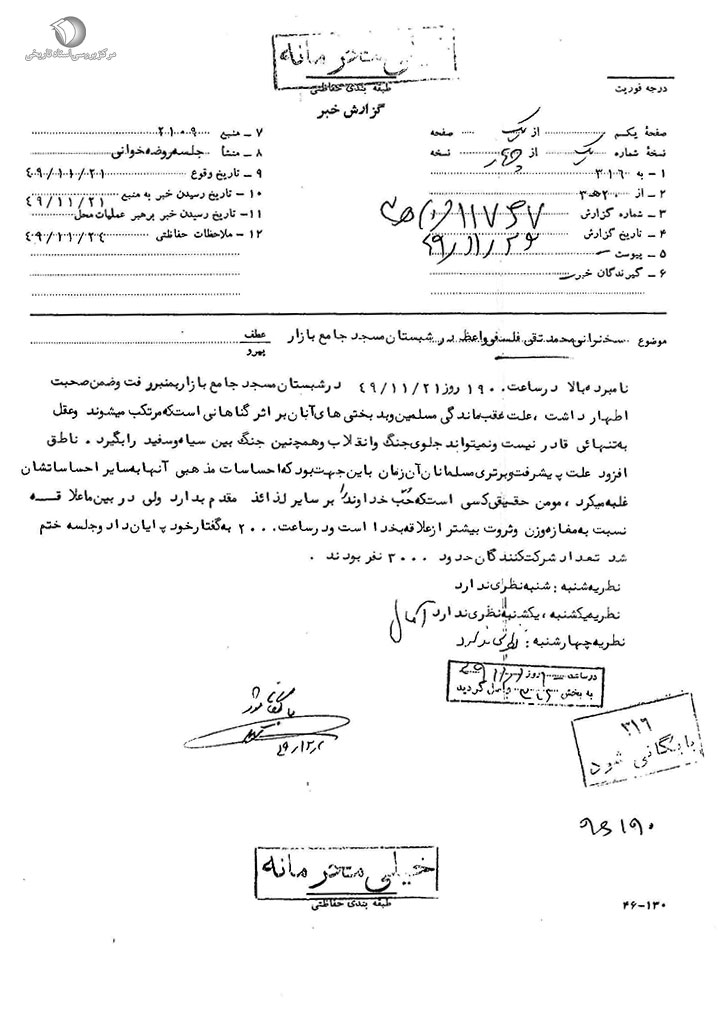 مرکز بررسی اسناد تاریخی
خیلی محرمانه
طبقه بندی حفاظتی
درجه فوریت
گزارش خبر
صفحهٔ یکم یک از یک صفحه
نسخهٔ شماره یک از چهار نسخه
۱ – به ۳۱۶
۲ – از ۲۰ هـ ۳
۳ – شماره گزارش
۴ – تاریخ گزارش ۴۹/۱۱/۲۶
۵ – پیوست
۶ – گیرندگان خبر
۷ – منبع ۲۱۰۰۹
۸ – منشأ جلسه روضه خوانی
۹ – تاریخ وقوع ۴۹/۱۱/۲۱
۱۰ – تاریخ رسیدن خبر به منبع ۴۹/۱۱/۲۱
۱۱ – تاریخ رسیدن خبر برهبر عملیات محل
۱۲ – ملاحظات حفاظتی ۴۹/۱۱/۲۴
موضوع سخنرانی محمد تقی فلسفی واعظ در شبستان مسجد جامع بازار
عطف
پیرو
نامبرده بالا در ساعت ۱۹۰۰ روز ۴۹/۱۱/۲۱ در شبستان مسجد جامع بازار بمنبر رفت وضمن صحبت
اظهار داشت ، علت عقب ماندگی مسلمین وبدبختی های آنان بر اثر گناهانی است که مرتکب میشوند وعقل
به تنهائی قادر نیست ونمیتواند جلوی جنگ وانقلاب وهمچنین جنگ بین سیاه وسفید را بگیرد . ناطق
افزود علت پیشرفت وبرتری مسلمانان آن زمان باین جهت بود که احساسات مذهبی آنها به سایر احساساتشان
غلبه میکرد ، مومن حقیقی کسی است که حب خداوند را بر سایر لذائذ مقدم بدارد ولی در بین ما علاقه
نسبت به مغازه وزن وثروت بیشتر از علاقه بخدا است ودر ساعت ۲۰۰۰ به گفتار خود پایان داد وجلسه ختم
شد تعداد شرکت کنندگان حدود ۳۰۰۰ نفر بودند .
نظریه شنبه : شنبه نظری ندارد
نظریه یکشنبه ، یکشنبه نظری ندارد
نظریه چهارشنبه : نظری ندارد
در ساعت روز
به بخش ۳۱۶ واصل گردید
بایگانی شود
۴۹/۱۲/۲
۳۱۶
بایگانی شود
خیلی محرمانه
طبقه بندی حفاظتی
۴۶–۱۳۰